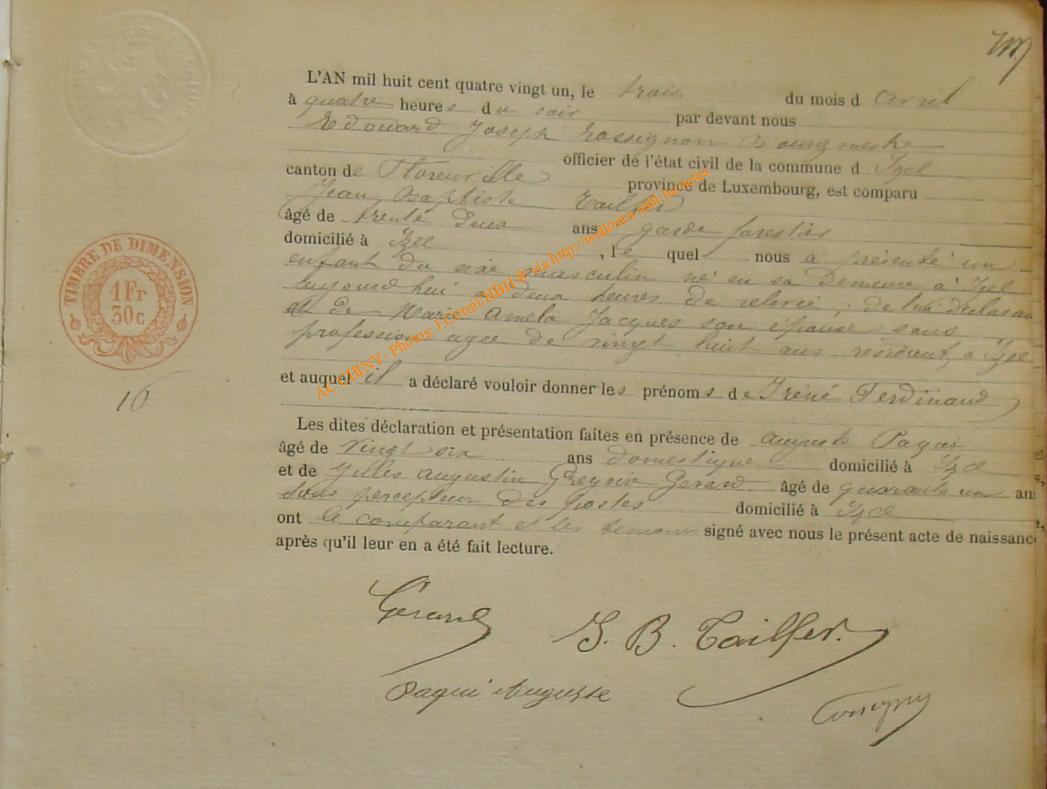 L'AN mil huit cent quatre vingt un, le trois du mois d avril
à quatre heures du soir par devant nous
Edouard Joseph Rossignon Bourgmestre
officier de l'état civil de la commune d Izel
canton de Florenville province de Luxembourg, est comparu
Jean Baptiste Tailfer
âgé de trente deux ans garde forestier
domicilié à Izel, le quel nous a présenté un
enfant du sexe masculin né en sa demeure à Izel
aujourd'hui à deux heures de relevée, de lui déclarant
et de Marie Amela Jacques son épouse, sans
profession agée de vingt huit ans résidant à Izel
et auquel il a déclaré vouloir donner les prénoms de Iréné Ferdinand
Les dites déclaration et présentation faites en présence de Auguste Paqui
âgé de vingt six ans domestique domicilié à Izel
et de Gilles Augustin Grégoire Gerard âgé de quarante un ans
sous percepteur des Postes domicilié à Izel
ont le comparant et les temoins signé avec nous le présent acte de naissance
après qu'il leur en a été fait lecture.
TIMBRE DE DIMENSION
1 Fr
30 c
16
Gérard
J. B. Tailfer.
Paqui Auguste